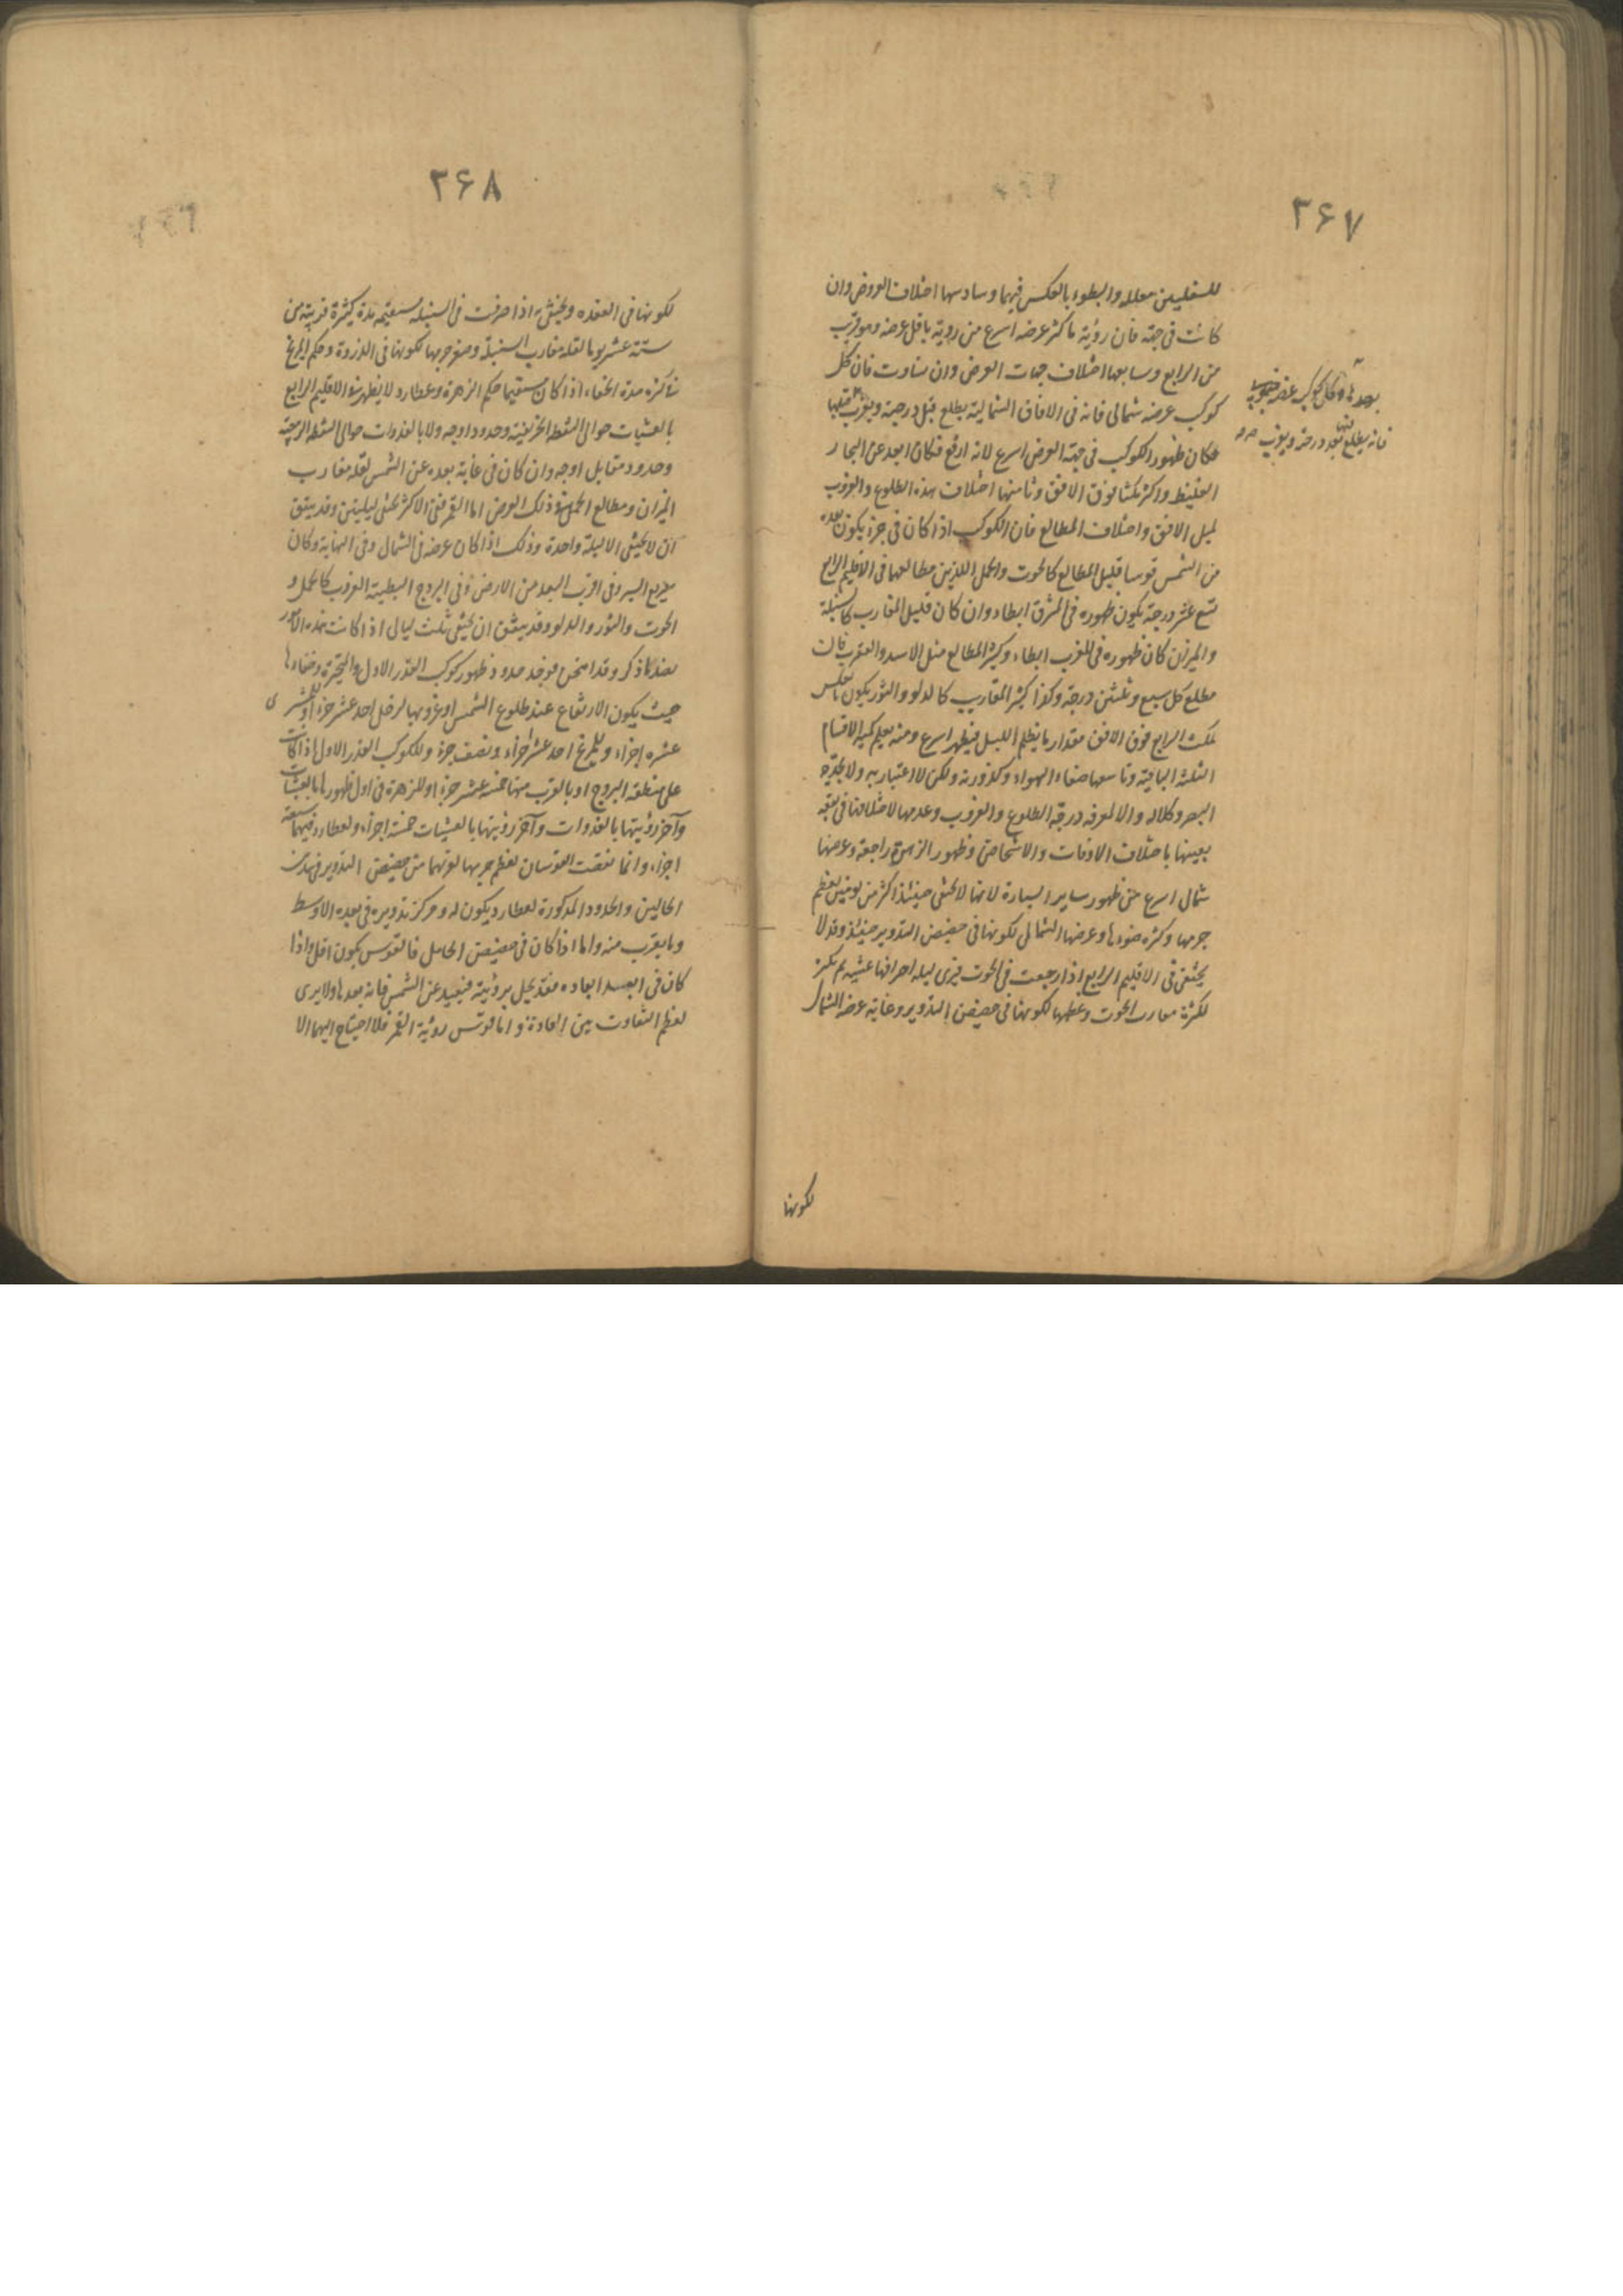 ۳۶۷
للسفليين معللا والبطوء بالعكس فيهما وسادسها اختلاف العروض وان
كانت فى جهة فان رؤية ما كثر عرضه اسرع من رؤية ما قل عرضه وهو قريب
من الرابع وسابعها اختلاف جهات العرض وان تساوت فان كل
كوكب عرضه شمالى فانه فى الافاق الشمالية يطلع قبل درجته ويغرب
بعدها وكل كوكب عرضه جنوبى
فانه يطلع فيها بعد درجته ويغرب
قبلها
فكان ظهور الكوكب فى جهة العرض اسرع لانه ارفع فكان ابعد عن البخار
الغليظ واكثر مكثا فوق الافق وثامنها اختلاف هذه الطلوع والغروب
لميل الافق واختلاف المطالع فان الكوكب اذا كان فى جزء يكون بعده
من الشمس قوسا قليل المطالع كالحوت والحمل اللذين مطالعهما فى الاقليم الرابع
تسع عشر درجة يكون ظهوره فى المشرق ابطاء وان كان قليل المغارب كالسنبلة
والميزان كان ظهوره فى المغرب ابطاء وكثير المطالع مثل الاسد والعقرب فان
مطلع كل سبع وثلثين درجة وكذا كثير المغارب كالدلو والثور يكون بالعكس
لمكث الرابع فوق الافق مقدار ما يظلم الليل فيظهر اسرع ومنه يعلم كمية الاقسام
الثلثة الباقية وتاسعها صفاء الهواء وكدورته ولكن لا اعتبار به ولا بحدة
البصر وكلاله والا لمعرفة درجة الطلوع والغروب وعدمها لاختلافها فى بقعة
بعينها باختلاف الاوقات والاشخاص وظهور الزهرة راجعة وعرضها
شمال اسرع من ظهور ساير السيارة لانها لا تختفى حينئذ اكثر من يومين لعظم
جرمها وكثرة ضوءها وعرضها الشمالى لكونها فى حضيض التدوير حينئذ وقد لا
يختفى فى الاقليم الرابع اذا رجعت فى الحوت فيرى ليلة احترافها عشية ثم بكرة
لكثرة مغارب الحوت وعظمها لكونها فى حضيض التدوير وغاية عرضه الشمال
لكونها
۳۶۸
لكونها فى العقدة ويختفى اذا صرفت فى السنبلة مستقيمة مدة كثيرة قريبة من
ستة عشر يوما لقلة مغارب السنبلة وصغر جرمها لكونها فى الذروة وحكم المريخ
فى كثرة مدة الخفاء اذا كان مستقيما حكم الزهرة وعطارد لا يظهر فى الاقليم الرابع
بالعشيات حوالى النقطة الخريفية وحدود اوجه ولا بالغدوات حوالى النقطة الربيعية
وحدود مقابل اوجه وان كان فى غاية بعده عن الشمس لقلة مغارب
الميزان ومطالع الحمل فى ذلك العرض اما القمر ففى الاكثر يختفى ليلتين وقد يتفق
ان لا يختفى الا ليلة واحدة وذلك اذا كان عرضه فى الشمال وفى النهاية وكان
سريع السير وفى اقرب البعد من الارض وفى البروج البطيئة الغروب كالحمل و
الحوت والثور والدلو وقد يتفق ان يختفى ثلث ليالى اذا كانت هذه الامور
بضد ما ذكر وقد امتحن فوجد حدود ظهور كوكب القدر الاول والمتحيرة وخفاءها
حيث يكون الارتفاع عند طلوع الشمس او غروبها لزحل احد عشر جزءا وللمشترى
عشرة اجزاء وللمريخ احد عشر جزءا ونصف جزء وللكوكب القدر الاول اذا كانت
على منطقة البروج او بالقرب منها خمسة عشر جزءا وللزهرة فى اول ظهورها بالعشيات
وآخر رؤيتها بالغدوات وآخر رؤيتها بالعشيات خمسة اجزاء ولعطارد فيهما سبعة
اجزاء وانما نقصت القوسان لعظم جرمها لقربهما من حضيض التدوير فى هذين
الحالين والحدود المذكورة لعطارد يكون له ومركز تدويره فى بعده الاوسط
وما يقرب منه واما اذا كان فى حضيض الحامل فالقوس يكون اقل واذا
كان فى ابعد ابعاده فقد يخل برؤيته فيبعد عن الشمس غاية بعدها ولا يرى
لعظم التفاوت بين العادة واما قوس رؤية القمر فلا احتياج اليها الا